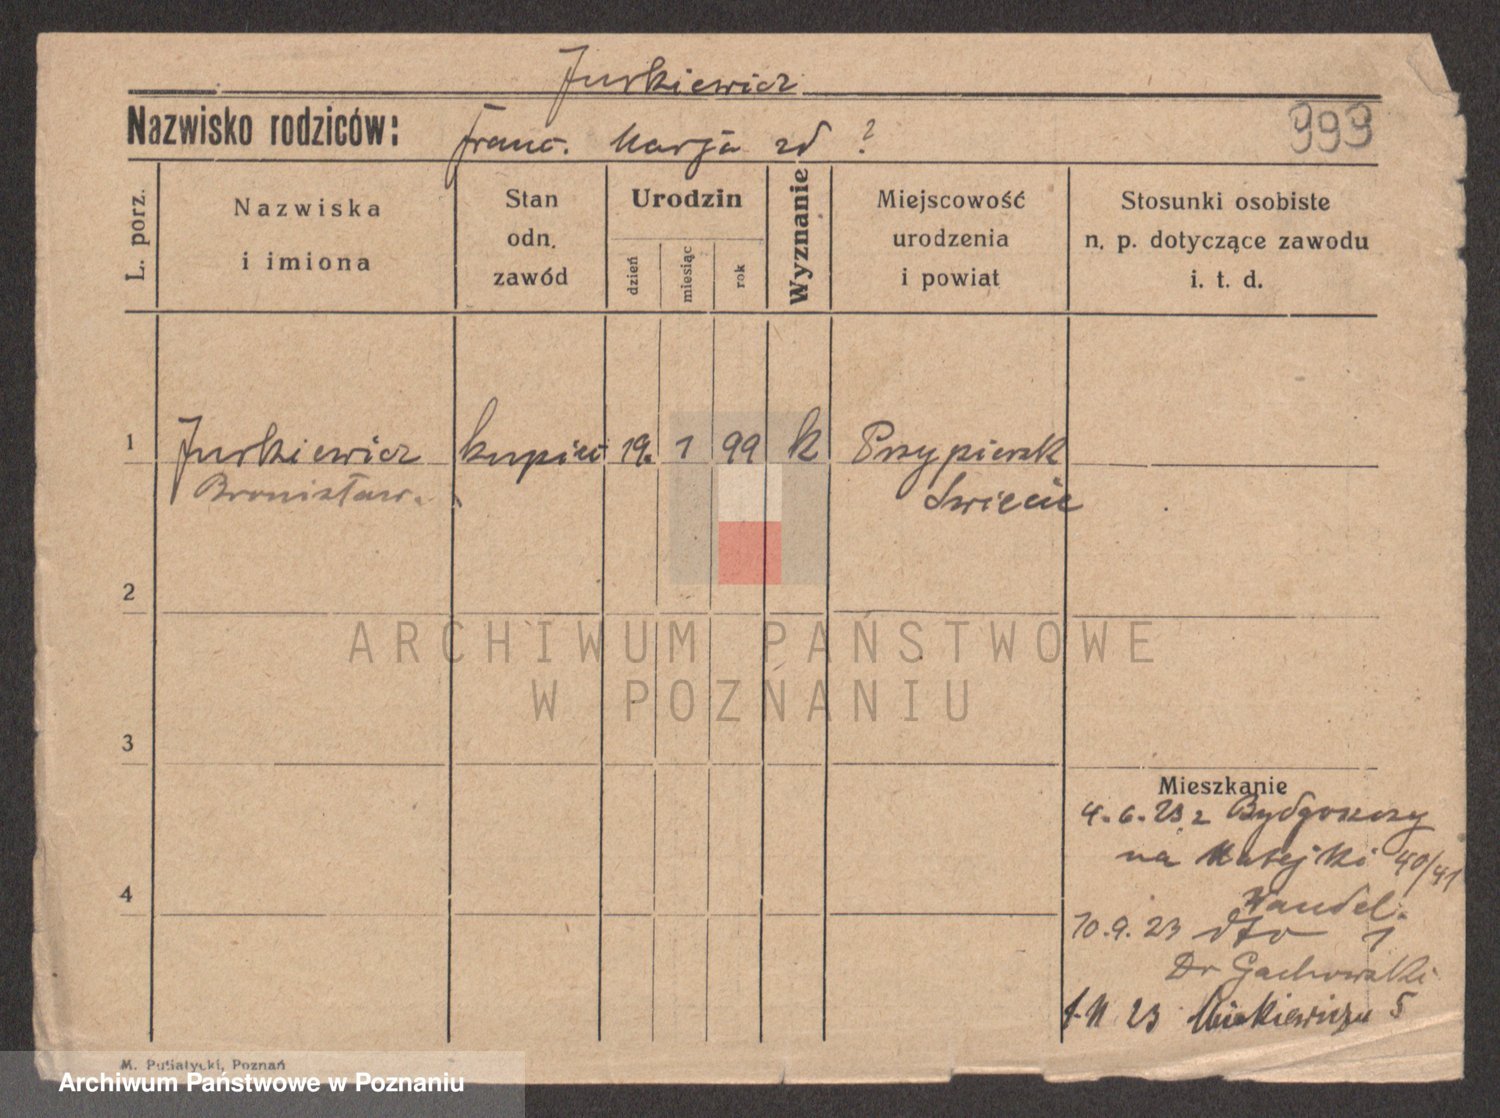 Jurkiewicz
Nazwisko rodziców: Franc. Marja zd ?
999
L. porz.
Nazwiska
i imiona
Stan
odn.
zawód
Urodzin
dzień
miesiąc
rok
Wyznanie
Miejscowość
urodzenia
i powiat
Stosunki osobiste
n. p. dotyczące zawodu
i. t. d.
1 Jurkiewicz kupiec 19. 1 99 k Przypiersk
Bronisław. Swiecie
2
3
4
ARCHIWUM PAŃSTWOWE
W POZNANIU
Mieszkanie
4.6.23 z Bydgoszczy
na Matejki 40/41
Wandel.
10.9.23 dto 1
Dr Gachowski
23 Mickiewicza 5
M. Putiatycki, Poznań
Archiwum Państwowe w Poznaniu